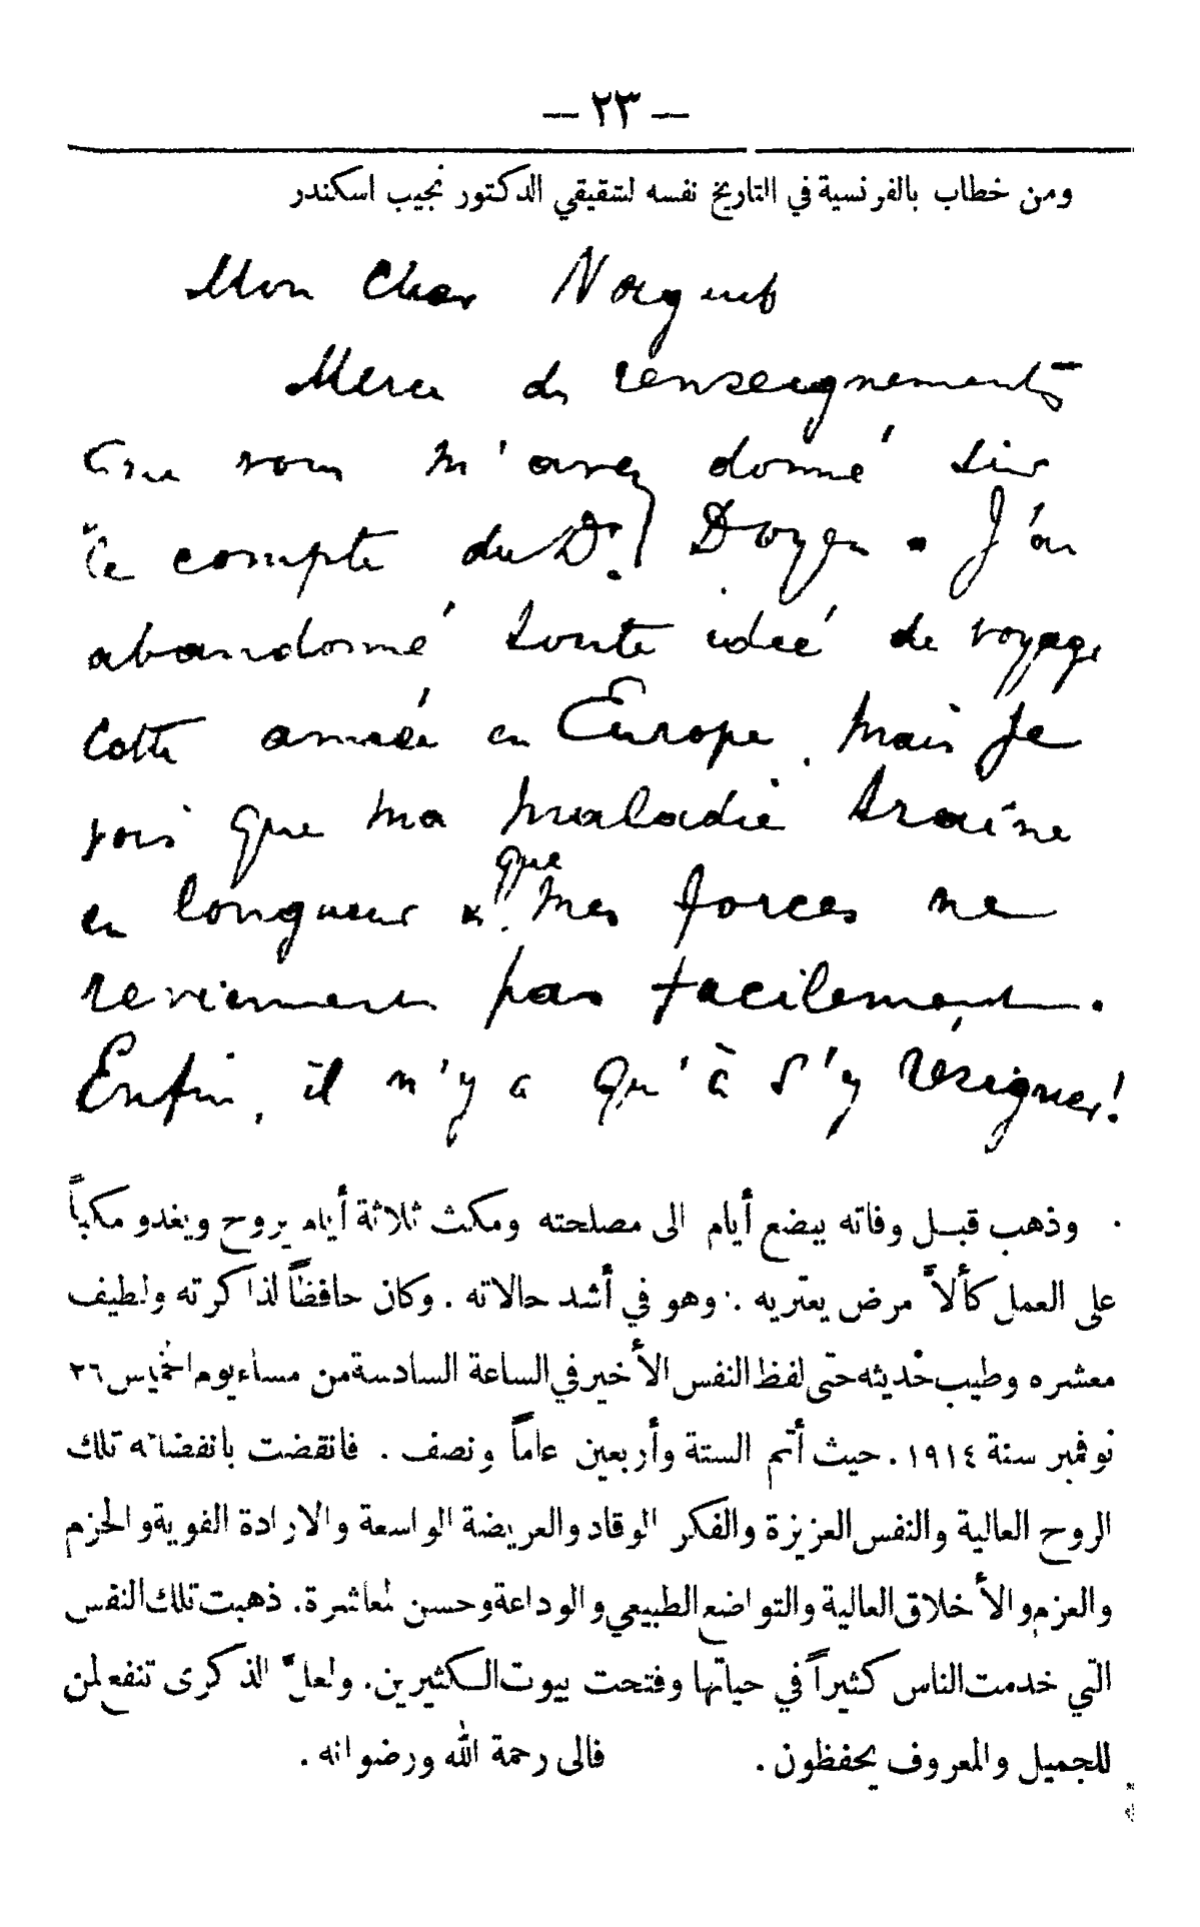 — ٢٣ —
ومن خطاب بالفرنسية في التاريخ نفسه لشقيقي الدكتور نجيب اسكندر
Mon Cher Naguib
Merci des renseignements
que vous m'avez donné sur
le compte du Dr. Doyen. J'ai
abandonné toute idée de voyage
cette année en Europe. Mais je
vois que ma maladie traîne
en longueur & que mes forces ne
reviennent pas facilement.
Enfin, il n'y a qu'à s'y résigner!
وذهب قبل وفاته ببضع أيام الى مصلحته ومكث ثلاثة أيام يروح ويغدو مكباً
على العمل كألاَّ مرض يعتريه . وهو في أشد حالاته . وكان حافظاً لذاكرته ولطيف
معشره وطيب حديثه حتى لفظ النفس الأخير في الساعة السادسة من مساء يوم الخميس ٢٦
نوفمبر سنة ١٩١٤ . حيث أتم الستة وأربعين عاماً ونصف . فانقضت بانقضائه تلك
الروح العالية والنفس العزيزة والفكر الوقاد والعريضة الواسعة والارادة القوية والحزم
والعزم والأخلاق العالية والتواضع الطبيعي والوداعة وحسن المعاشرة. ذهبت تلك النفس
التي خدمت الناس كثيراً في حياتها وفتحت بيوت الكثيرين. ولعلَّ الذكرى تنفع لمن
للجميل والمعروف يحفظون . فالى رحمة الله ورضوانه .